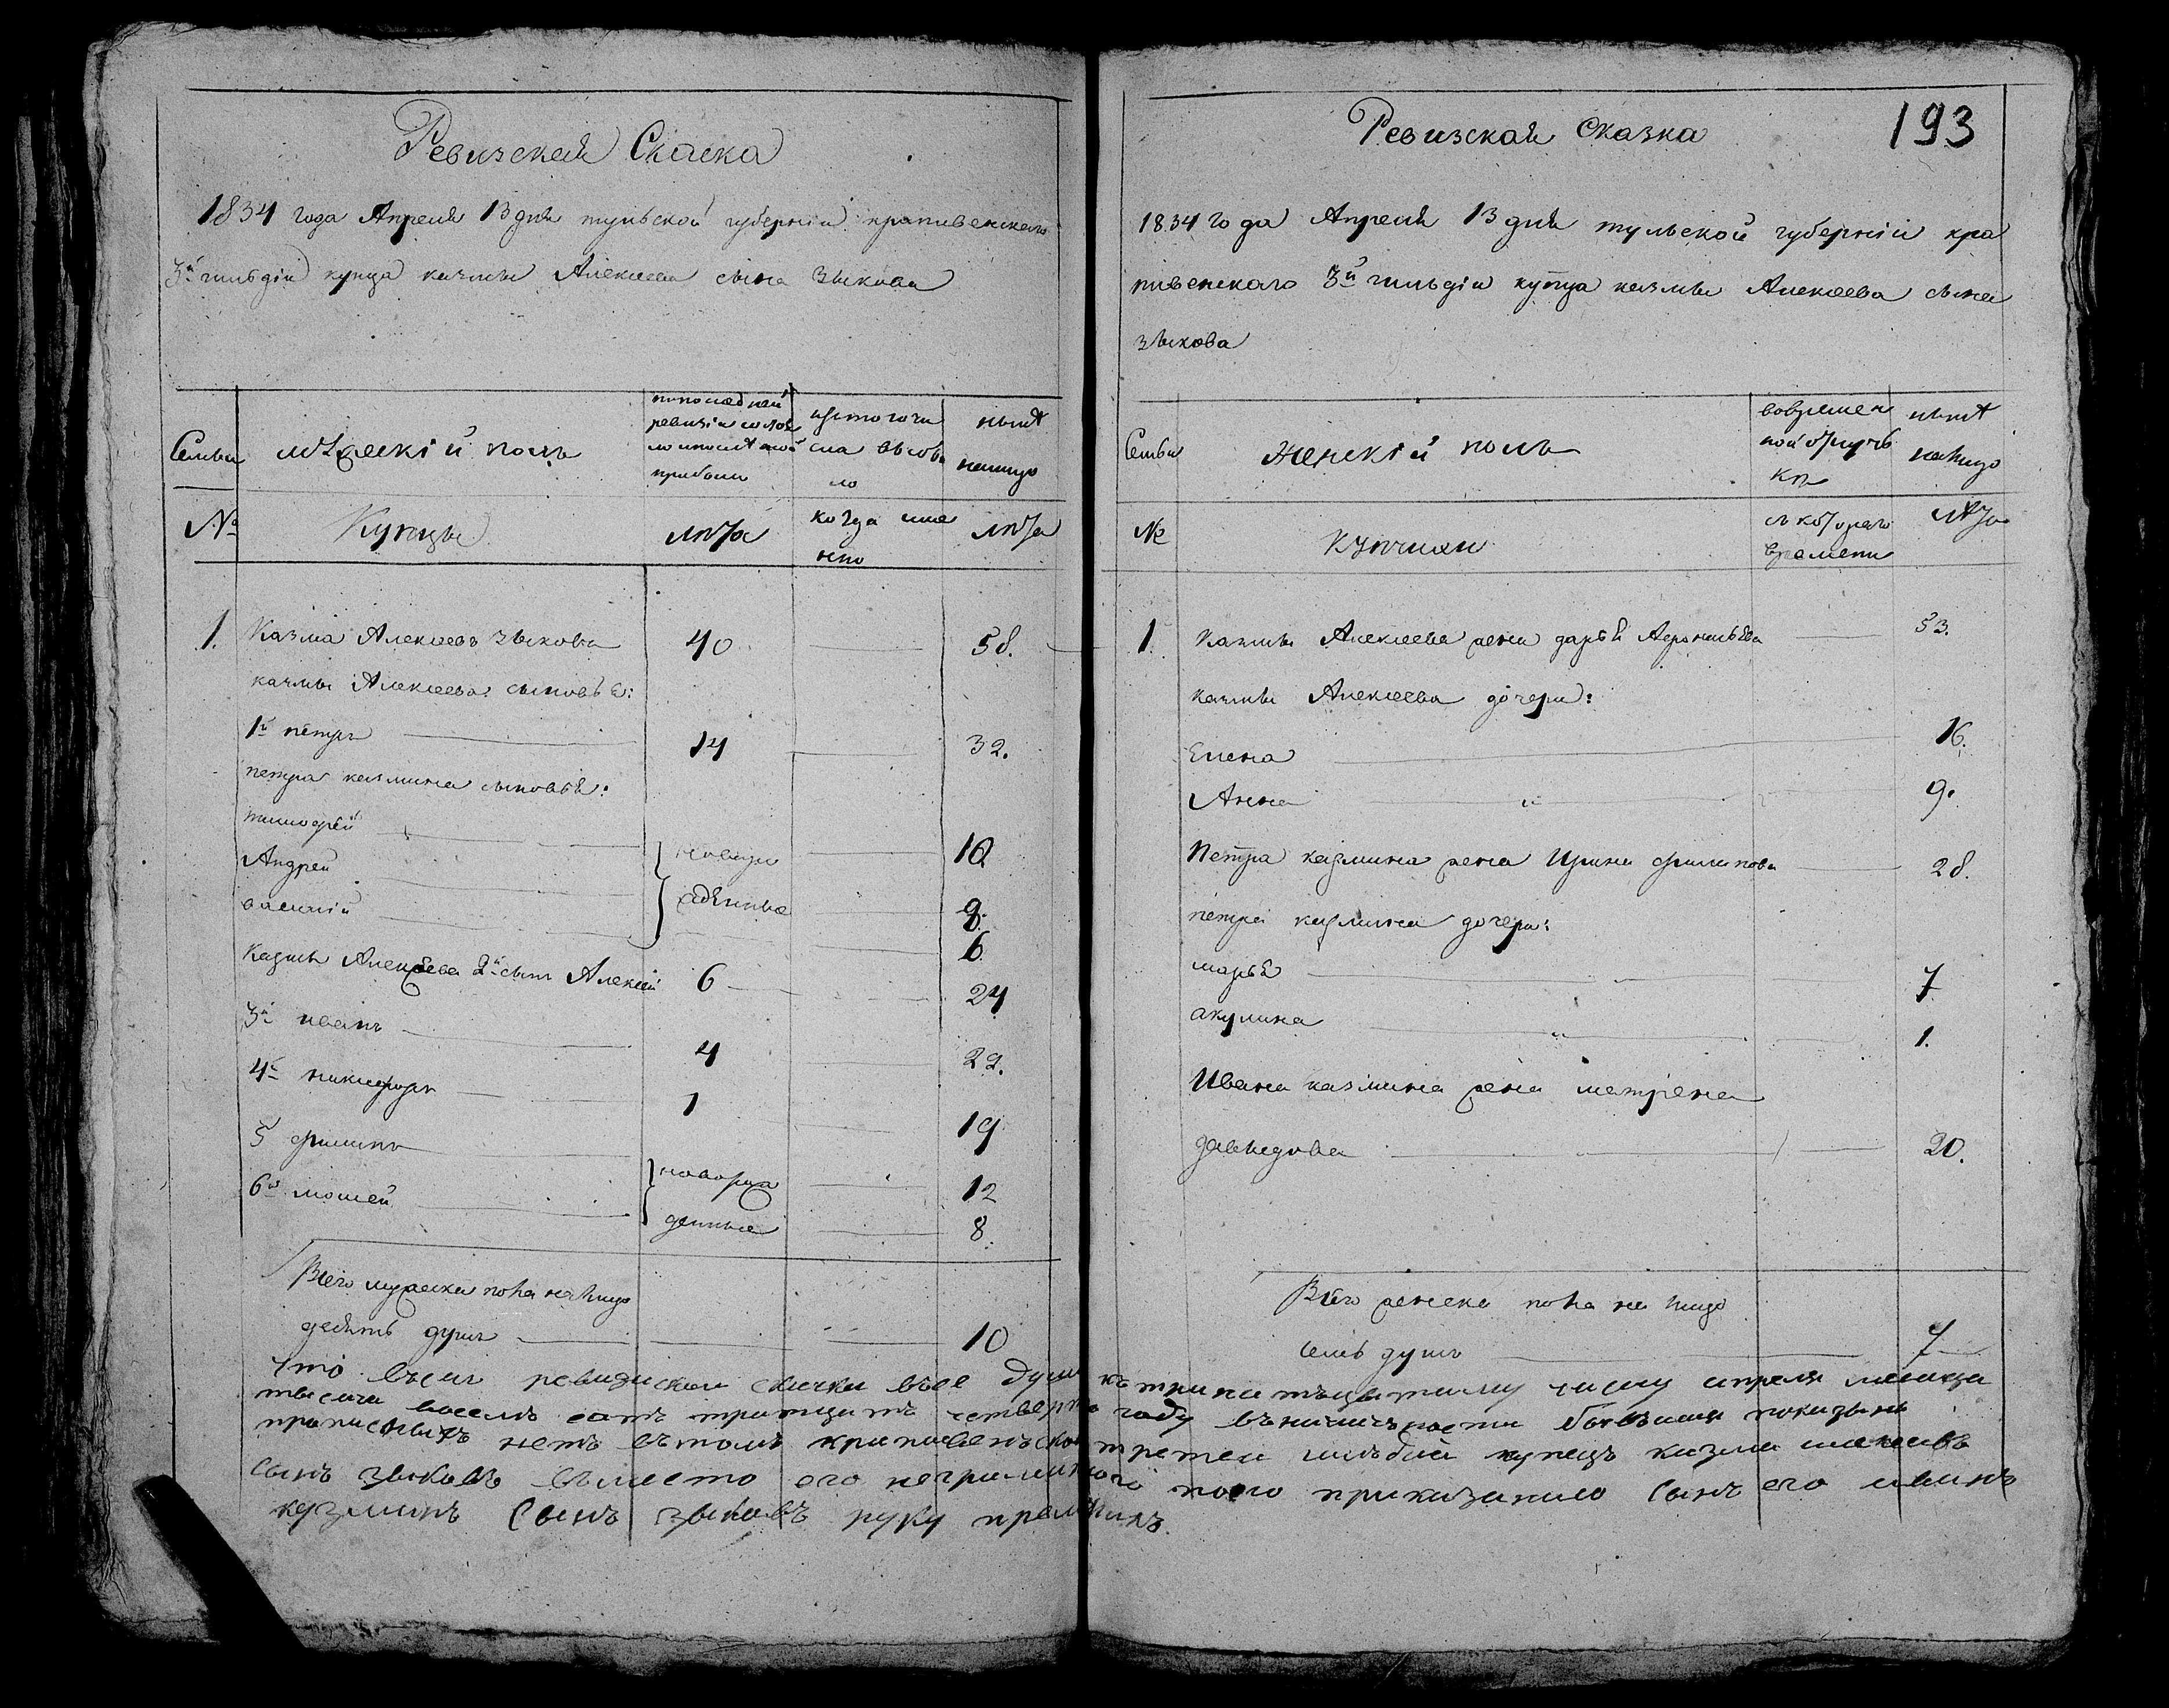 Ревизская Скаска
1834 года Апреля 13 дня тульской губерніи крапивенскаго
3й гильдіи купца казмы Алексеева сына Зыкова
Семьи
мужескій полъ
по последней
ревизіи состоя
ло и после той
прибыло
изтого чи
сла выбы
ло
ныне
налицо
№
Купцы
лета
когда име
нно
лета
1. Казма Алексеевъ Зыковъ 40 58.
казмы Алексеева сыновья:
1й петръ 14 32.
петра казмина сыновья:
тимофей 10
Андрей новоро 9.
василій жденные 6
Казмы Алексеева 2й сынъ Алексей 6 24
3й иванъ 4 22.
4й никифоръ 1 19
5 филипъ новорож 12
6й мосей денные 8.
Всего мужеска пола на лицо
десять душъ 10
193
Ревизская Сказка
1834 года Апреля 13 дня тульской губерніи кра
пивенскаго 3й гильдіи купца казмы Алексеева сына
зыкова
Семьи
женскій полъ
вовремен
ной отлуч
ке
ныне
налицо
№
купчихи
съ котораго
времени
лета
1. Казмы Алексеева жена дарья 53.
казмы Алексеева дочери:
Елена 16.
Анна 9.
Петра казмина жена Ирина филипова 28.
петра казмина дочери:
марья 7
акулина 1.
Ивана казмина жена матрена
давыдова 20.
Всего женска пола на лицо
семь душъ 7
Что въсей ревизской скачки въсе души къ тринатъцатаму числу апреля месица
тысеча восемь сатъ тритцатъ четверта году въналичности бывъшия показаны
прописныхъ нетъ въ томъ крапивенской третей гильдии купецъ казма алексевъ
сынъ зыковъ въместо его негра поего приказанию сынъ его иванъ
кузминъ сынъ зыковъ руку приложилъ.